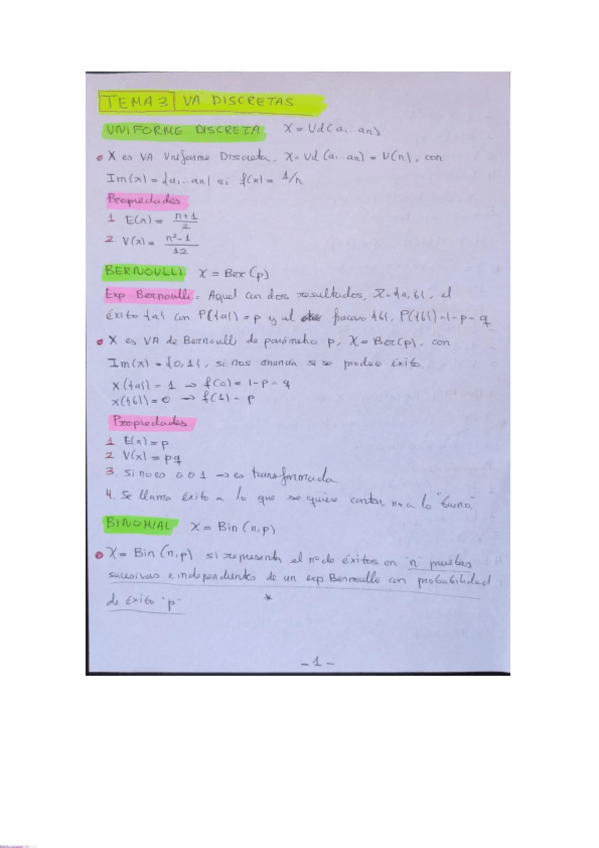 TEMA 3 VA DISCRETAS
UNIFORME DISCRETA X = Ud(a1...an)
X es VA Uniforme Discreta, X = Ud (a1...an) = U(n), con
Im(x) = {a1...an} si f(x) = 1/n
Propiedades
1. E(x) = n+1/2
2. V(x) = n²-1/12
BERNOULLI X = Ber(p)
Exp Bernoulli = Aquel con dos resultados, X = {a,b}, el
éxito {a} con P({a}) = p y al fracaso {b}, P({b}) = 1-p = q
X es VA de Bernoulli de parámetro p, X = Ber(p), con
Im(x) = {0,1}, si nos anuncia si se produce éxito.
X({a}) = 1 → f(0) = 1-p = q
X({b}) = 0 → f(1) = p
Propiedades
1 E(x) = p
2 V(x) = pq
3. Si no es 0 o 1 → es transformada
4. Se llama éxito a lo que se quiere contar, no a lo "bueno".
BINOMIAL X = Bin (n,p)
X = Bin (n,p) si representa el nº de éxitos en "n" pruebas
sucesivas e independientes de un exp Bernoulli con probabilidad
de éxito "p" *
- 1 -